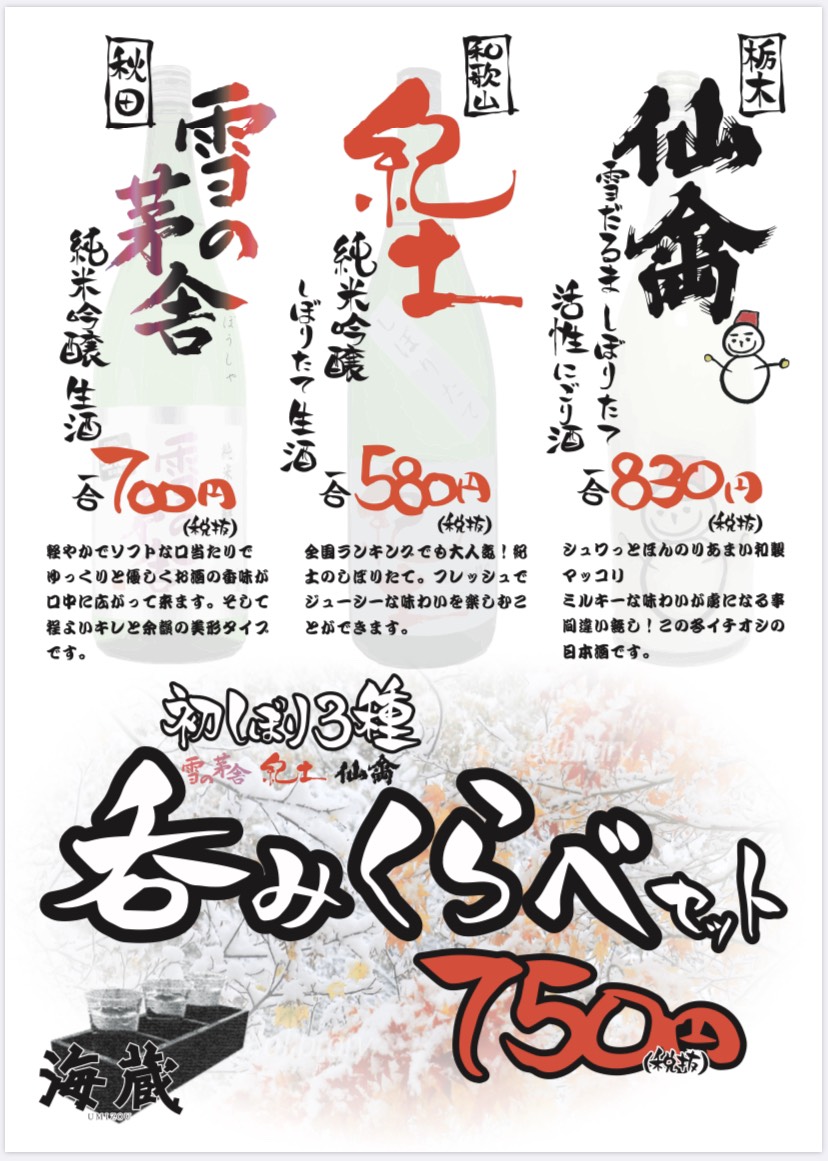 栃木
仙禽
雪だるま しぼりたて
活性にごり酒
一合830円
(税抜)
シュワっとほんのりあまい和製
マッコリ
ミルキーな味わいが虜になる事
間違い無し！この冬イチオシの
日本酒です。
和歌山
紀土
純米吟醸
しぼりたて生酒
一合580円
(税抜)
全国ランキングでも大人気！紀
土のしぼりたて。フレッシュで
ジューシーな味わいを楽しむこ
とができます。
秋田
雪の茅舎
純米吟醸 生酒
一合700円
(税抜)
軽やかでソフトな口当たりで
ゆっくりと優しくお酒の香味が
口中に広がって来ます。そして
程よいキレと余韻の美形タイプ
です。
初しぼり3種
雪の茅舎 紀土 仙禽
呑みくらべセット
750円
(税抜)
海蔵
UMIZOU